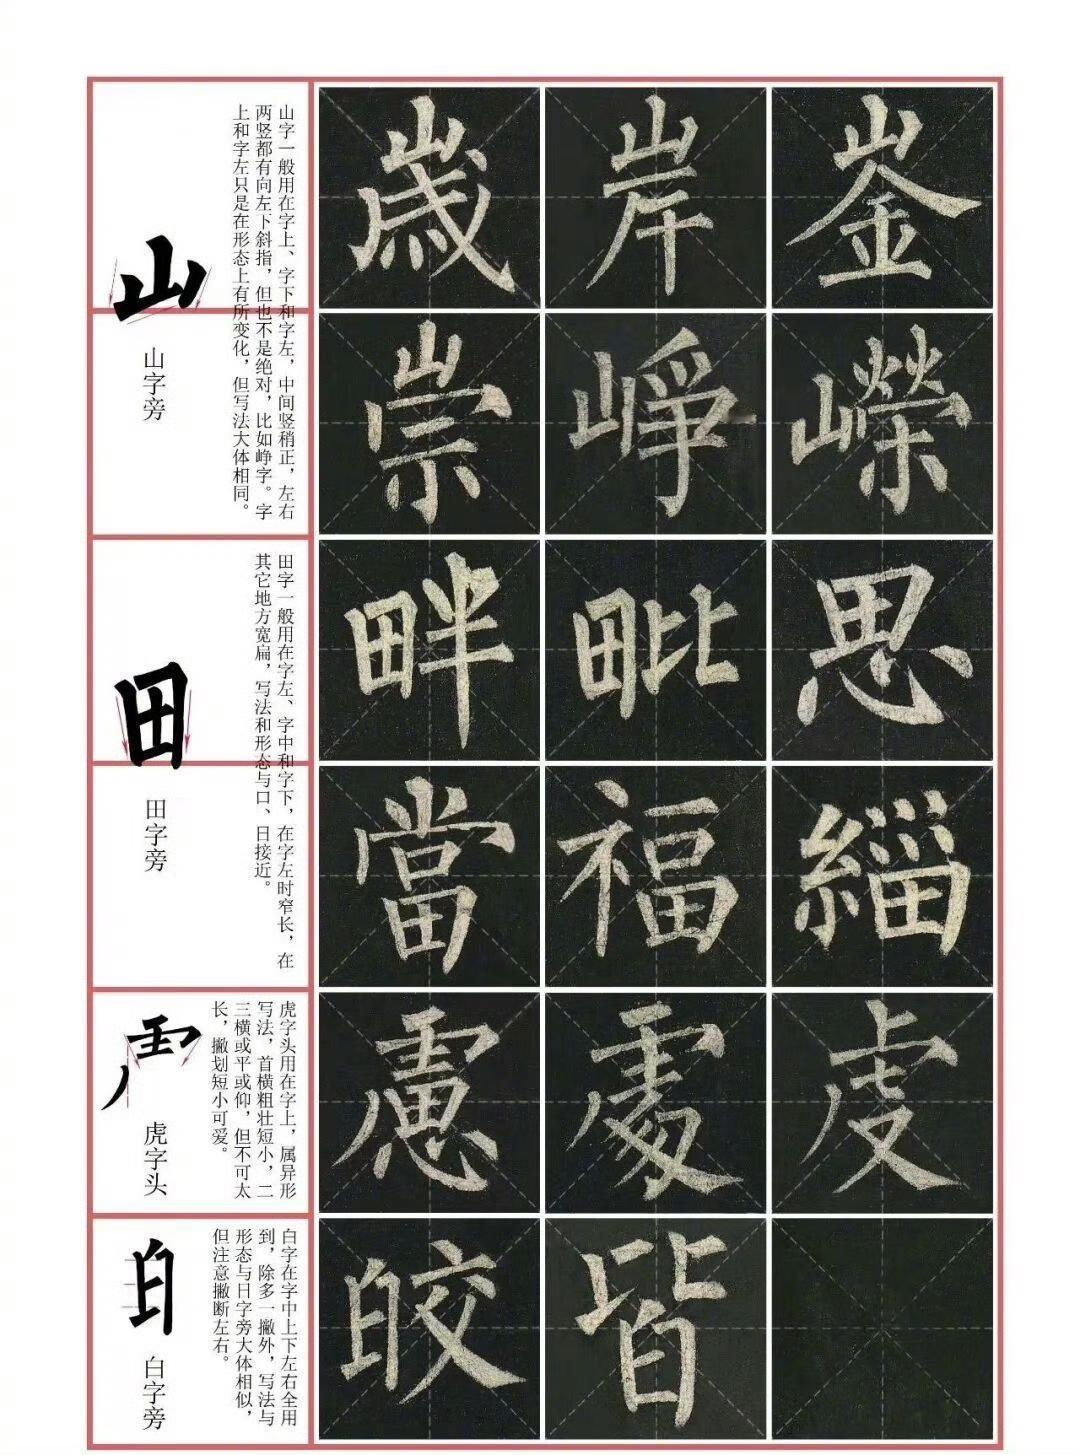 山
山字旁
山字一般用在字上、字下和字左，中间竖稍正，左右
两竖都有向左下斜指，但也不是绝对，比如峥字。字
上和字左只是在形态上有所变化，但写法大体相同。
歲岸崟
崇崢嶸
田
田字旁
田字一般用在字左、字中和字下，在字左时窄长，在
其它地方宽扁，写法和形态与口、日接近。
畔毗思
當福緇
虎字头
虎字头用在字上，属异形
写法，首横粗壮短小，二
三横或平或仰，但不可太
长，撇划短小可爱。
慮處虔
白
白字旁
白字在字中上下左右全用
到，除多一撇外，写法与
形态与日字旁大体相似，
但注意撇断左右。
皎皆